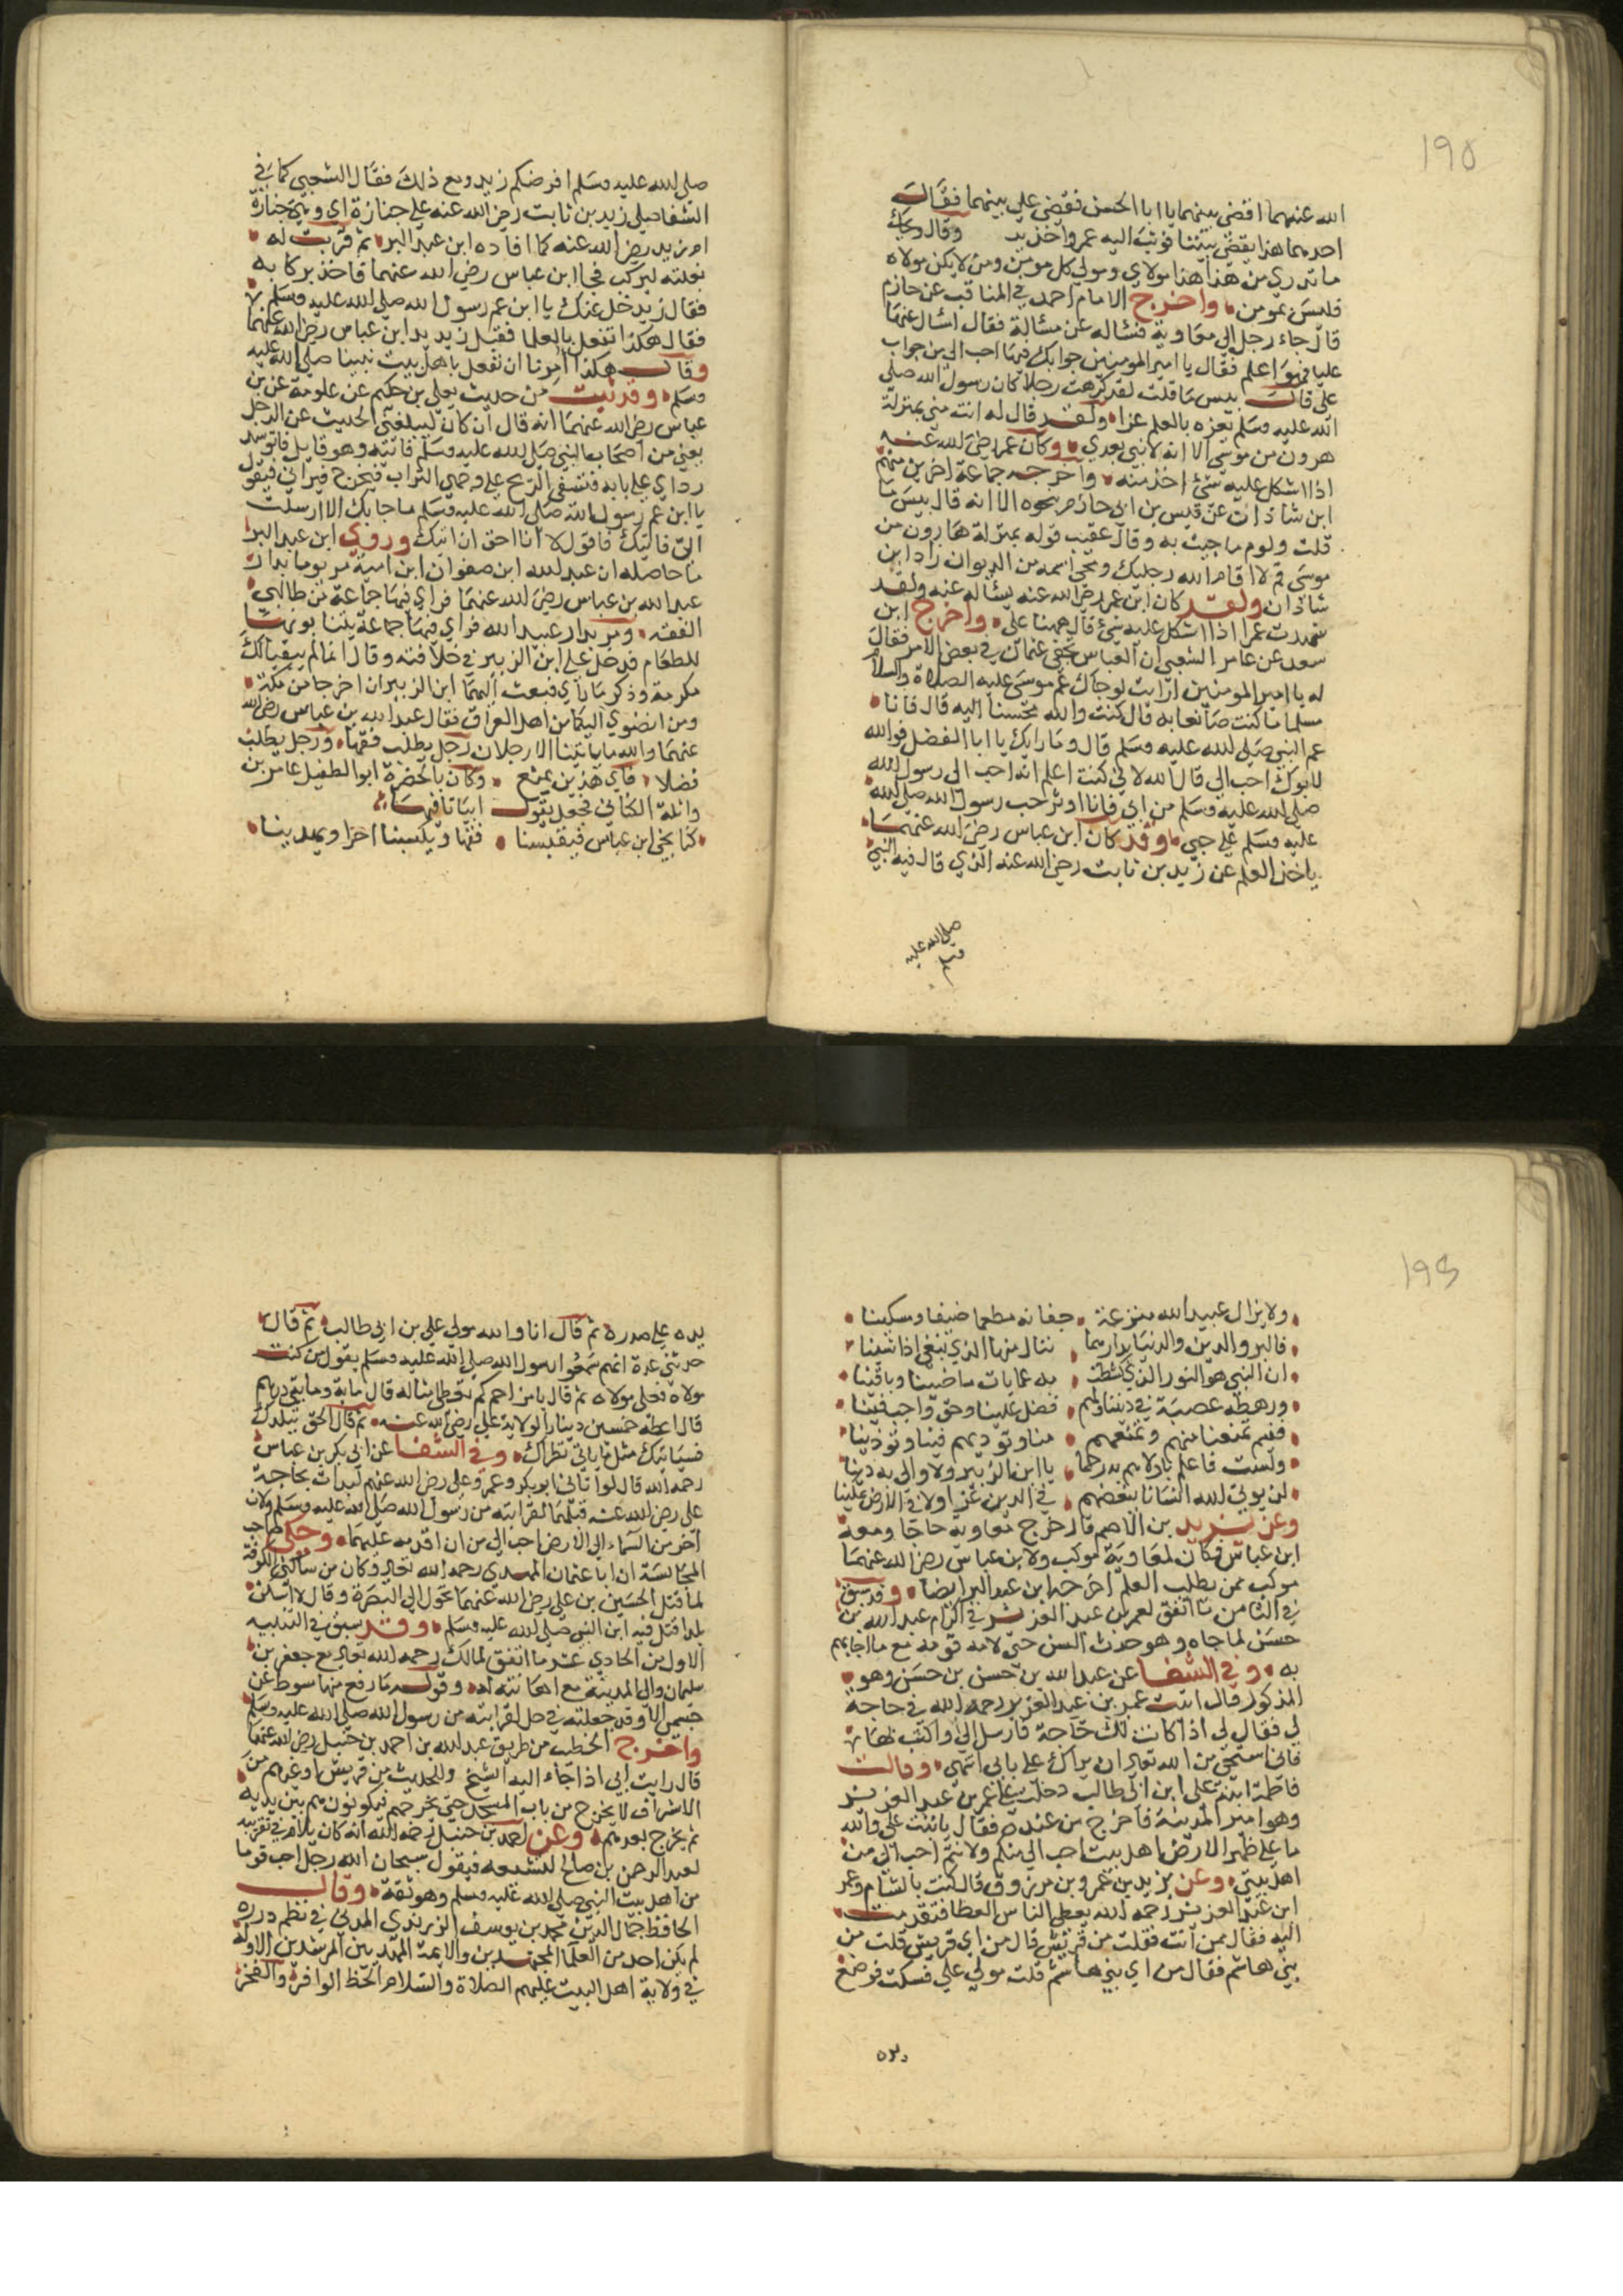 195
الله عنهما اقضي بينهما يا ابا الحسن فقضى علي بينهما فقالت
احدهما هذا يقضي بيننا فوثب اليه عمر واخذ بيد وقال ويحك
ما تدري من هذا هذا مولاي ومولي كل مومن ومن لا يكن مولاه
فليس بمومن واخرج الامام احمد في المناقب عن حازم
قال جاء رجل الي معاوية فساله عن مسالة فقال اسال عنها
عليا فهو اعلم فقال يا امير المومنين جوابك فيها احب الي من جواب
علي قال بيس ما قلت لقد كرهت رجلا كان رسول الله صلى
الله عليه وسلم يعزه بالعلم عزا ولقد قال له انت مني بمنزلة
هرون من موسى الا انه لا نبي بعدي وكان عمر رضي الله عنه
اذا اشكل عليه شئ اخذ منه واخرجه جماعة اخرين منهم
ابن شاذان عن قيس بن ابي حازم بنحوه الا انه قال بيس ما
قلت ولوم ما جيت به وقال عقب قوله بمنزلة هارون من
موسى قم لا اقام الله رجليك ومحى اسمه من الديوان زاد ابن
شاذان ولقد كان ابن عمر رضي الله عنه يسئاله عنه ولقد
شهدت عمرا اذا اشكل عليه شئ قال ههنا علي واخرج ابن
سعد عن عامر الشعبي ان العباس تحفى عثمان في بعض الامر فقال
له يا امير المومنين ارايت لوجاك عم موسى عليه الصلاة والسلام
مسلما ما كنت صانعا به قال كنت والله محسنا اليه قال فانا
عم النبي صلى الله عليه وسلم قال وما رايك يا ابا الفضل فوالله
لابوك احب الي قال الله لاني كنت اعلم انه احب الى رسول الله
صلى الله عليه وسلم من ابي فانا اوثر حب رسول الله صلى الله
عليه وسلم علي حبي وقد كان ابن عباس رضي الله عنهما
ياخذ العلم عن زيد بن ثابت رضي الله عنه الذي قال فيه النبي
صلى الله عليه
وسلم
صلى الله عليه وسلم افرضكم زيد ومع ذلك فقال الشعبي كما في
الشفا صلي زيد بن ثابت رضي الله عنه علي جنازة اي وهي جنازة
ام زيد رضي الله عنه كما افاده ابن عبد البر ثم قربت له
بغلته ليركب فجا ابن عباس رضي الله عنهما فاخذ بركابه
فقال زيد خل عنك يا ابن عم رسول الله صلى الله عليه وسلم
فقال هكذا نفعل بالعلما فقبل زيد يد ابن عباس رضي الله عنهما
وقال هكذا امرنا ان نفعل باهل بيت نبينا صلى الله عليه
وسلم وقد ثبت من حديث يعلي بن حكيم عن عكرمة عن بن
عباس رضي الله عنهما انه قال ان كان ليبلغني الحديث عن الرجل
يعني من اصحاب النبي صلى الله عليه وسلم فاتيه وهو قايل فاتوسد
رداي علي بابه فتسفي الريح علي وجهي التراب فيخرج فيراني فيقول
يا ابن عم رسول الله صلى الله عليه وسلم ما جا بك الا ارسلت
الي فاتيك فاقول لا انا احق ان اتيك وروي ابن عبد البر
ما حاصله ان عبد الله ابن صفوان ابن امية مر يوما بدار
عبد الله بن عباس رضي الله عنهما فراي فيها جماعة من طالبي
الفقه ومر بدار عبيد الله فراي فيها جماعة ينتابونها
للطعام فدخل علي ابن الزبير في خلافته وقال انما لم يبقيا لك
مكرمة وذكر ما راي فبعث اليهما ابن الزبير ان اخرجا من مكة
ومن انضوي اليكما من اهل العراق فقال عبد الله بن عباس رضي الله
عنهما والله ما ياتينا الا رجلان رجل يطلب فقها ورجل يطلب
فضلا فاي هذين يمنع وكان بالحضرة ابو الطفيل عامر بن
واثلة الكناني فجعل يقول ابياتا فيها
كنا نجي ابن عباس فيقبسنا فقها ويكسبنا اجرا ويهدينا
193
ولا يزال عبيد الله مترعة جفانه مطعما ضيفا ومسكينا
فالبر والدين والدنيا بدارهما ننال منها الذي نبغي اذا شينا
ان النبي هو النور الذي كشطت به عمايات ماضينا وباقينا
ورهطه عصبة في ديننا ولهم فضل علينا وحق واجب فينا
ففيم تمنعنا منهم وتمنعهم منا وتوذيهم فينا وتوذينا
ولست فاعلم باولاهم به رحما يا ابن الزبير ولا والي به دينا
لن يوتي الله انسانا ببغضهم في الدين عزا ولا في الارض علينا
وعن يزيد بن الاصم قال خرج معاوية حاجا ومعه
ابن عباس فكان لمعاوية موكب ولابن عباس رضي الله عنهما
موكب ممن يطلب العلم اخرجه ابن عبد البر ايضا وقد سبق
في الثامن ما اتفق لعمر بن عبد العزيز في اكرام عبد الله بن
حسن لما جاه وهو حدث السن حتى لامه قومه مع ما اجابهم
به وفي الشفا عن عبد الله بن حسن بن حسن وهو
المذكور قال اتيت عمر بن عبد العزيز رحمه الله في حاجة
لي فقال لي اذا كانت لك حاجة فارسل الي او اكتب بها
فاني استحي من الله تعالى ان يراك علي بابي انتهى وقالت
فاطمة ابنة علي ابن ابي طالب دخلت علي عمر بن عبد العزيز
وهو امير المدينة فاخرج من عنده فقال يا بنت علي والله
ما علي ظهر الارض اهل بيت احب الي منكم ولانتم احب الي من
اهل بيتي وعن يزيد بن عمرو بن مرزوق قال كنت بالشام وعمر
ابن عبد العزيز رحمه الله يعطي الناس العطا فتقدمت
اليه فقال ممن انت فقلت من قريش قال من اي قريش قلت من
بني هاشم فقال من اي بني هاشم قلت مولي علي فسكت فوضع
يده
يده علي صدره ثم قال انا والله مولي علي بن ابي طالب ثم قال
حدثني عدة انهم سمعوا رسول الله صلى الله عليه وسلم يقول من كنت
مولاه فعلي مولاه ثم قال يا مزاحم كم تعطي امثاله قال ماية وما يتي درهم
قال اعطه خمسين دينارا لولاية علي رضي الله عنه ثم قال الحق ببلدك
فسياتيك مثل ما ياتي نظراك وفي الشفا عن ابي بكر بن عباس
رحمه الله قال لو اتاني ابو بكر وعمر وعلي رضي الله عنهم لبدات بحاجة
علي رضي الله عنه قبلهما لقرابته من رسول الله صلى الله عليه وسلم ولان
اخر من السماء الي الارض احب الي من ان اقدمه عليهما وحكى صاحب
المجالسة ان ابا عثمان النهدي رحمه الله تعالى وكان من ساكني الكوفة
لما قتل الحسين بن علي رضي الله عنهما تحول الي البصرة وقال لا اسكن
بلدا قتل فيه ابن النبي صلى الله عليه وسلم وقد سبق في التنبيه
الاول من الحادي عشر ما اتفق لمالك رحمه الله تعالى مع جعفر بن
سليمان والي المدينة مع اهانته له وقوله ما رفع منها سوط عن
جسمي الا وقد جعلته في حل لقرابته من رسول الله صلى الله عليه وسلم
واخرج الخطيب من طريق عبد الله بن احمد بن حنبل رضي الله عنهما
قال رايت ابي اذا جاء اليه الشيخ والحديث من قريش او غيرهم من
الاشراف لا يخرج من باب المسجد حتى يخرجهم فيكونون هم بين يديه
ثم يخرج بعدهم وعن احمد بن حنبل رحمه الله انه كان يلام في تقريبه
لعبد الرحمن بن صالح لتشيعه فيقول سبحان الله رجل احب قوما
من اهل بيت النبي صلى الله عليه وسلم وهو ثقة وقال
الحافظ جمال الدين محمد بن يوسف الزرندي المدني في نظم درره
لم يكن احد من العلما المجتهدين والايمة المهديين المرشدين الاوله
في ولاية اهل البيت عليهم الصلاة والسلام الحظ الوافر والفخر